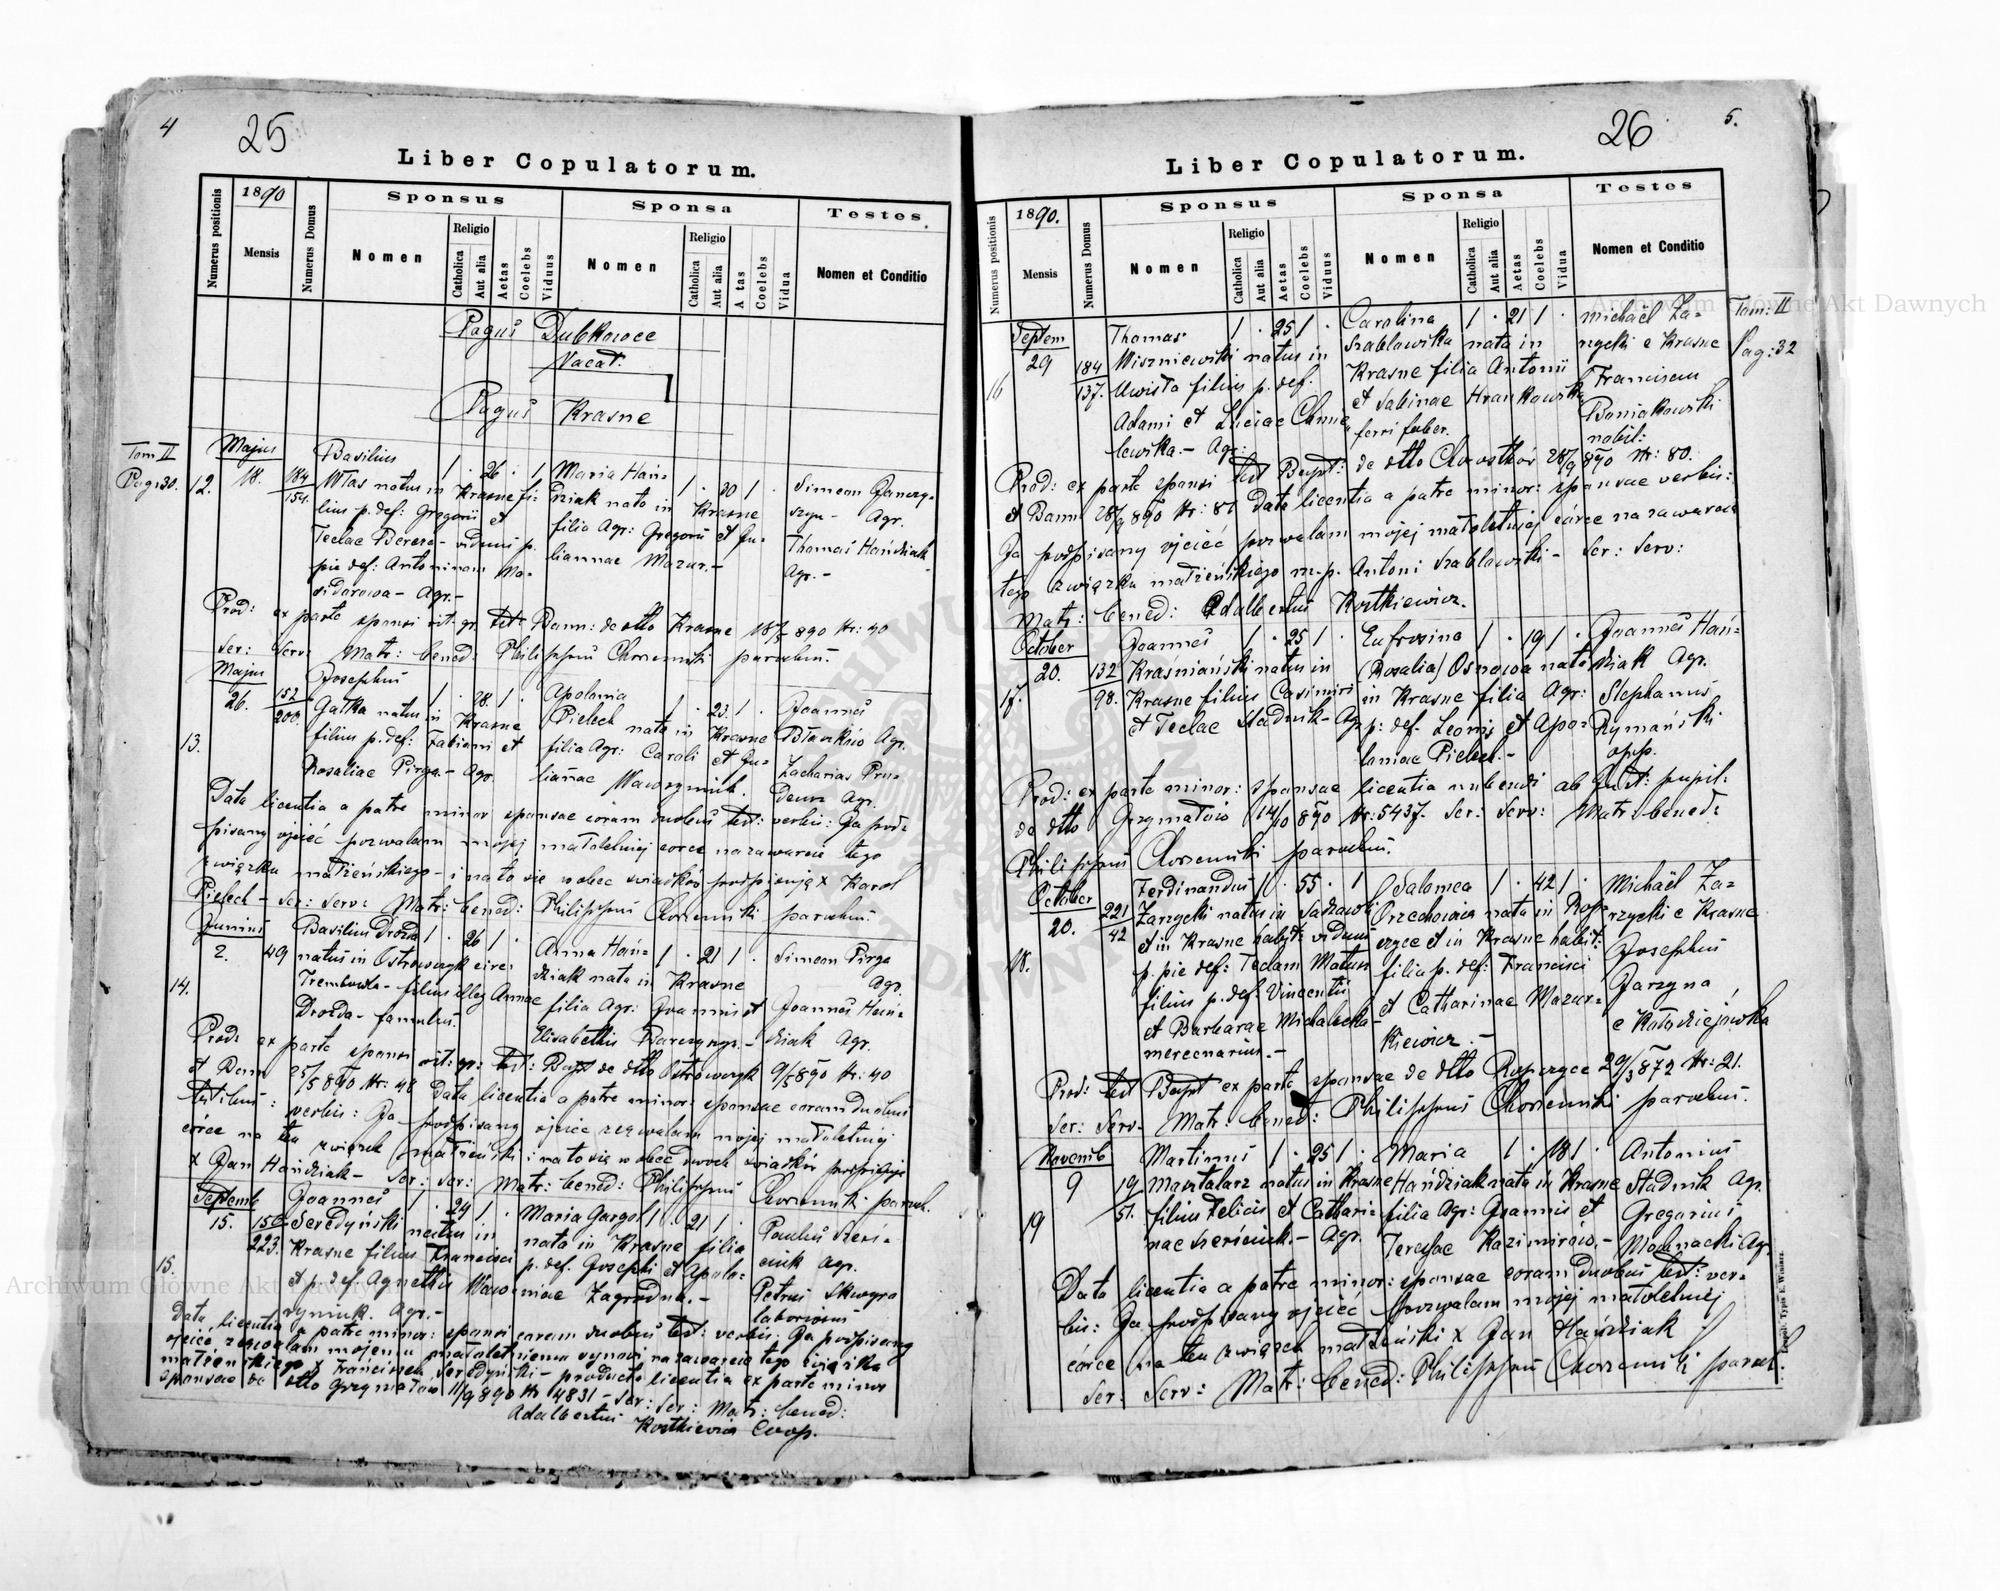 4
25
Liber Copulatorum.
Numerus positionis
1890
Mensis
Numerus Domus
Sponsus
Nomen
Religio
Catholica
Aut alia
Aetas
Coelebs
Viduus
Sponsa
Nomen
Religio
Catholica
Aut alia
A tas
Coelebs
Vidua
Testes
Nomen et Conditio
Pagus Dubkowce
Vacat.
Pagus Krasne
Tom II
Pag: 30.
12.
Majus
18.
184
154
Basilius 1 . 26 . 1
Wlas natus in Krasne fi-
lius p. def: Gregorii et
Teclae Bereza - viduus p.
pie def: Antoninam
- Agr. -
Maria Hań- 1 . 20 1 .
dziak nata in Krasne
filia Agr: Gregorii et Ju-
liannae Mazur. -
Simeon
- Agr.
Thomas Hańdziak
Agr. -
Prod: ex parte sponsi rit. gr. test: Bann: de dtto Krasne 18/5 890 Nr: 40
Ser: Serv: Matr: bened: Philippus parochus.
13.
Majus
26.
152
200.
Josephus 1 . 28. 1 .
Gałka natus in Krasne
filius p. def: Fabiani et
Rosaliae Pirga. - Agr.
Apolonia 1 . 23. 1 .
Pielech nata in Krasne
filia Agr: Caroli et Ju-
liannae Wawryniuk.
Joannes
Agr.
Zacharias Pru-
Agr.
Data licentia a patre minor sponsae coram duobus test: verbis: Ja pod-
pisany ojciec pozwalam mojej małoletniej córce na zawarcie tego
związku małżeńskiego - i na to się wobec świadków podpisuję x Karol
Pielech - Ser: Serv: Matr: bened: Philippus parochus
14.
Junius
2.
49
Basilius Drozda 1 . 26 1 .
natus in Ostrowczyk circ:
Trembowla - filius illeg Annae
Drozda - famulus.
Anna Hań- 1 . 21 1 .
dziak nata in Krasne
filia Agr: Joannis et
Elisabethis
Simeon Pirga
Agr.
Joannes Hań-
dziak Agr.
Prod: ex parte sponsi rit: gr: test: Bapt de dtto Ostrowczyk 9/5 890 Nr: 40
et Bann 25/5 890 Nr: 48 Data licentia a patre minor: sponsae coram duobus
testibus: verbis: Ja podpisany ojciec zezwalam mojej małoletniej
córce na ten związek małżeński i na to się wobec dwóch świadków podpisuję
x Jan Hańdziak - Ser: Ser: Matr: bened: Philippus paroch.
15.
Septemb
15.
150
223.
Joannes 1 . 24 1 .
Seredyński natus in
Krasne filius Francisci
et p. def Agnethis Waw-
ryniuk. Agr. -
Maria Gargol 1 . 21 1 .
nata in Krasne filia
p. def. Josephi et Apolo-
niae Zagrodna. -
Paulus
Agr.
Petrus Skwyra
laboriosus
Data licentia a patre minor: sponsi coram duobus test: verbis: Ja podpisany
ojciec zezwalam mojemu małoletniemu synowi na zawarcie tego związku
małżeńskiego x Franciszek Seredyński - producta licentia ex parte minor
sponsae de dtto Grzymałów 11/9 890 Nr 4831 - Ser: Ser: Matr: bened:
Adalbertus
Kostkiewicz Coop.
26
5.
Liber Copulatorum.
Numerus positionis
1890.
Mensis
Numerus Domus
Sponsus
Nomen
Religio
Catholica
Aut alia
Aetas
Coelebs
Viduus
Sponsa
Nomen
Religio
Catholica
Aut alia
Aetas
Coelebs
Vidua
Testes
Nomen et Conditio
Tom: II
Pag: 32
16
Septem
29
184
137.
Thomas 1 . 25 1 .
Wiszniewski natus in
Uwisła filius p. def.
Adami et Luciae Chmie-
lewska. - Agr:
Carolina 1 . 21 1 .
Szablowska nata in
Krasne filia Antonii
et Sabinae Hrankowska
ferri faber.
Michaël Za-
rzycki e Krasne
Franciscus
Boniakowski
nobil:
Prod: ex parte sponsi test Bapt: de dtto Chorostków 28/9 890 Nr: 80.
et Bann 28/9 890 Nr: 81 Data licentia a patre minor: sponsae verbis:
Ja podpisany ojciec pozwalam mojej małoletniej córce na zawarcie
tego związku małżeńskiego m. p. Antoni Szablowski - Ser: Serv:
Matr: bened: Adalbertus Kostkiewicz.
17.
October
20.
132
98.
Joannes 1 . 25 1 .
Krasniański natus in
Krasne filius Casimiri
et Teclae Stadnik - Agr
Eufrosina 1 . 19 1 .
(Rosalia) Osnowa nata
in Krasne filia Agr:
p: def. Leonis et Apo-
loniae Pielech. -
Joannes Hań-
dziak Agr.
Stephanus
Rymański
Prod: ex parte minor: sponsae licentia nubendi ab Jud: pupil:
de dtto Grzymałów 14/10 890 Nr: 5437. Ser: Serv: Matr: bened:
Philippus parochus.
18.
October
20.
221
42
Ferdinandus 1 . 55 . 1
Zarzycki natus in Sadzawki
et in Krasne habit: viduus
p. pie def: Teclam
filius p. def Vincentii
et Barbarae Michalecka -
mercenarius. -
Salomea 1 . 42 1 .
Orzechowicz nata in Rop-
czyce et in Krasne habit:
filia p. def: Francisci
et Catharinae Mazur-
kiewicz. -
Michaël Za-
rzycki e Krasne
Josephus
Jarzyna
e Kołodziejówka
Prod: test Bapt ex parte sponsae de dtto Ropczyce 29/3 872 Nr: 21.
Ser: Serv. Matr: bened: Philippus parochus.
19
Novemb
9
19
51.
Martinus 1 . 25 1 .
Mastalarz natus in Krasne
filius Felicis et Cathari-
nae - Agr.
Maria 1 . 18 1 .
Hańdziak nata in Krasne
filia Agr: Joannis et
Teresae Kazimirów. -
Antonius
Stadnik Agr.
Gregorius
Mochnacki Agr.
Data licentia a patre minor: sponsae coram duobus test: ver-
bis: Ja podpisany ojciec pozwalam mojej małoletniej
córce na ten związek małżeński x Jan Hańdziak
Ser: Serv: Matr: bened: Philippus paroch.
Archiwum Główne Akt Dawnych
Archiwum Główne Akt Dawnych